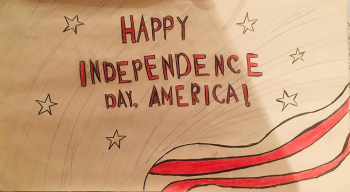 HAPPY
INDEPENDENCE
DAY, AMERICA!